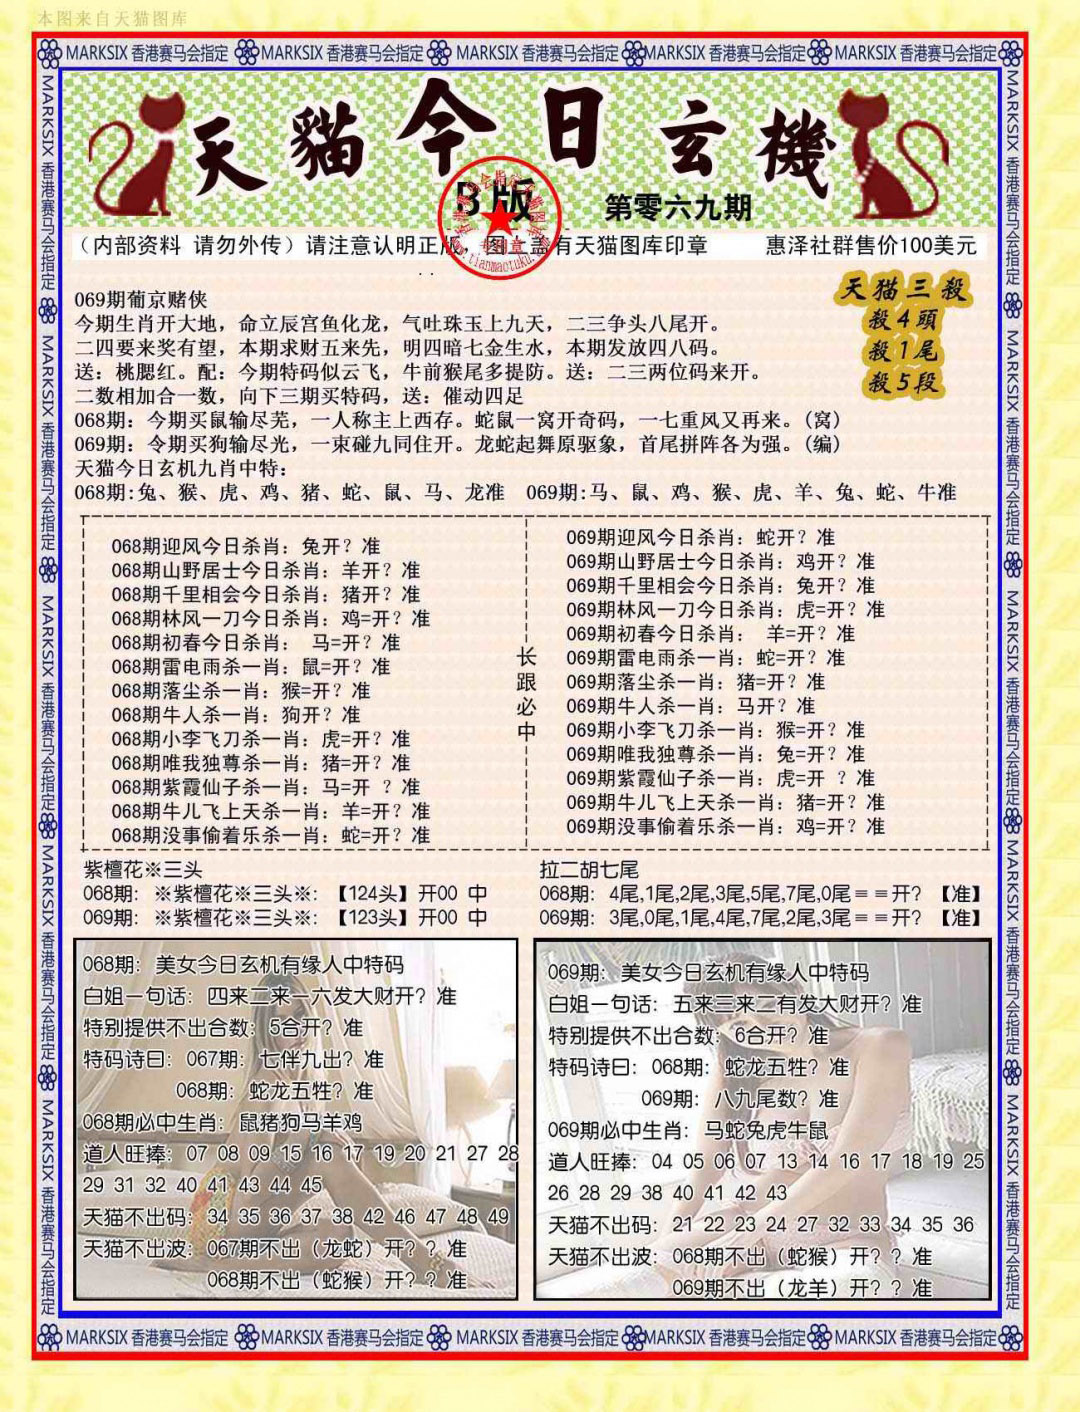 本图来自天猫图库
MARKSIX 香港赛马会指定 MARKSIX 香港赛马会指定 MARKSIX 香港赛马会指定 MARKSIX 香港赛马会指定 MARKSIX 香港赛马会指定
天貓今日玄機
B版
第零六九期
(内部资料 请勿外传) 请注意认明正版，图上盖有天猫图库印章 惠泽社群售价100美元
www.tianmaotuku.com
天猫三殺
殺4頭
殺1尾
殺5段
069期葡京赌侠
今期生肖开大地，命立辰宫鱼化龙，气吐珠玉上九天，二三争头八尾开。
二四要来奖有望，本期求财五来先，明四暗七金生水，本期发放四八码。
送：桃腮红。配：今期特码似云飞，牛前猴尾多提防。送：二三两位码来开。
二数相加合一数，向下三期买特码，送：催动四足
068期：今期买鼠输尽芜，一人称主上西存。蛇鼠一窝开奇码，一七重风又再来。(窝)
069期：令期买狗输尽光，一束碰九同住开。龙蛇起舞原驱象，首尾拼阵各为强。(编)
天猫今日玄机九肖中特：
068期:兔、猴、虎、鸡、猪、蛇、鼠、马、龙准 069期:马、鼠、鸡、猴、虎、羊、兔、蛇、牛准
068期迎风今日杀肖：兔开？准
068期山野居士今日杀肖：羊开？准
068期千里相会今日杀肖：猪开？准
068期林风一刀今日杀肖：鸡=开？准
068期初春今日杀肖： 马=开？准
068期雷电雨杀一肖：鼠=开？准
068期落尘杀一肖：猴=开？准
068期牛人杀一肖：狗开？准
068期小李飞刀杀一肖：虎=开？准
068期唯我独尊杀一肖：猪=开？准
068期紫霞仙子杀一肖：马=开 ？准
068期牛儿飞上天杀一肖：羊=开？准
068期没事偷着乐杀一肖：蛇=开？准
长跟必中
069期迎风今日杀肖：蛇开？准
069期山野居士今日杀肖：鸡开？准
069期千里相会今日杀肖：兔开？准
069期林风一刀今日杀肖：虎=开？准
069期初春今日杀肖： 羊=开？准
069期雷电雨杀一肖：蛇=开？准
069期落尘杀一肖：猪=开？准
069期牛人杀一肖：马开？准
069期小李飞刀杀一肖：猴=开？准
069期唯我独尊杀一肖：兔=开？准
069期紫霞仙子杀一肖：虎=开 ？准
069期牛儿飞上天杀一肖：猪=开？准
069期没事偷着乐杀一肖：鸡=开？准
紫檀花※三头
068期: ※紫檀花※三头※: 【124头】开00 中
069期: ※紫檀花※三头※: 【123头】开00 中
拉二胡七尾
068期: 4尾,1尾,2尾,3尾,5尾,7尾,0尾==开? 【准】
069期: 3尾,0尾,1尾,4尾,7尾,2尾,3尾==开? 【准】
068期: 美女今日玄机有缘人中特码
白姐一句话: 四来二来一六发大财开? 准
特别提供不出合数: 5合开? 准
特码诗曰: 067期: 七伴九出? 准
068期: 蛇龙五牲? 准
068期必中生肖: 鼠猪狗马羊鸡
道人旺捧: 07 08 09 15 16 17 19 20 21 27 28
29 31 32 40 41 43 44 45
天猫不出码: 34 35 36 37 38 42 46 47 48 49
天猫不出波: 067期不出（龙蛇）开? ? 准
068期不出（蛇猴）开? ? 准
069期: 美女今日玄机有缘人中特码
白姐一句话: 五来三来二有发大财开? 准
特别提供不出合数: 6合开? 准
特码诗曰: 068期: 蛇龙五牲? 准
069期: 八九尾数? 准
069期必中生肖: 马蛇兔虎牛鼠
道人旺捧: 04 05 06 07 13 14 16 17 18 19 25
26 28 29 38 40 41 42 43
天猫不出码: 21 22 23 24 27 32 33 34 35 36
天猫不出波: 068期不出（蛇猴）开? ? 准
069期不出（龙羊）开? ? 准
MARKSIX 香港赛马会指定 MARKSIX 香港赛马会指定 MARKSIX 香港赛马会指定 MARKSIX 香港赛马会指定 MARKSIX 香港赛马会指定
MARKSIX 香港赛马会指定 MARKSIX 香港赛马会指定 MARKSIX 香港赛马会指定 MARKSIX 香港赛马会指定 MARKSIX 香港赛马会指定
MARKSIX 香港赛马会指定 MARKSIX 香港赛马会指定 MARKSIX 香港赛马会指定 MARKSIX 香港赛马会指定 MARKSIX 香港赛马会指定